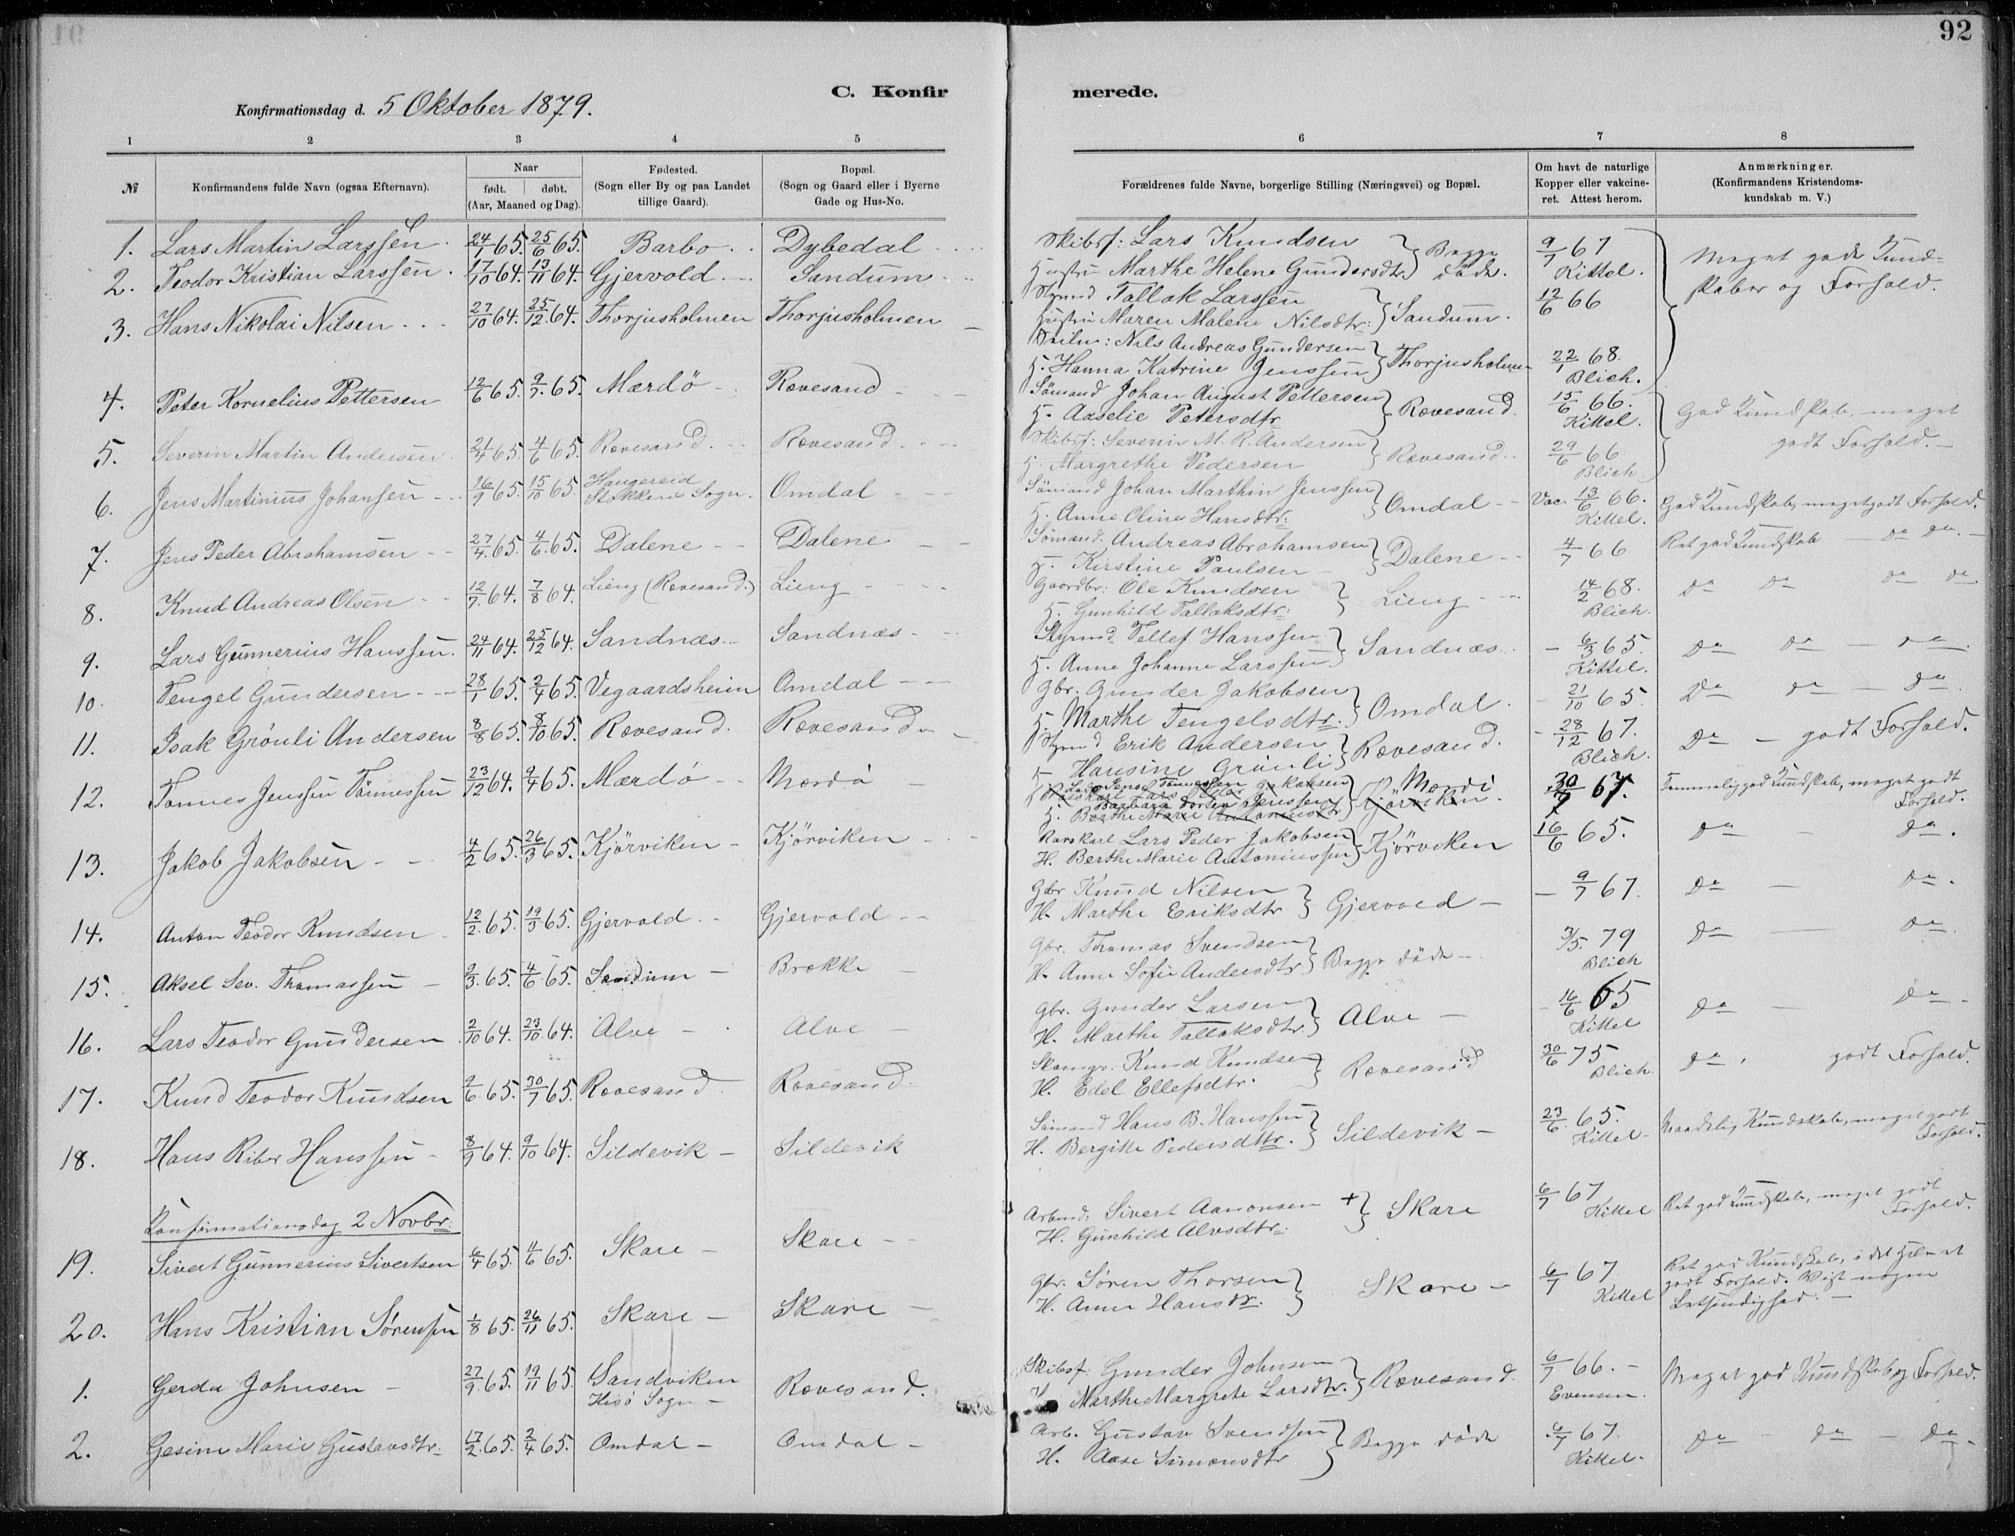 92
C. Konfirmerede.
Konfirmationsdag d. 5 Oktober 1879.
1 2 3 4 5 6 7 8
№ Konfirmandens fulde Navn (ogsaa Efternavn). Naar født. døbt. (Aar, Maaned og Dag). Fødested. (Sogn eller By og paa Landet tillige Gaard). Bopæl. (Sogn og Gaard eller i Byerne Gade og Hus-No. Forældrenes fulde Navne, borgerlige Stilling (Næringsvei) og Bopæl. Om havt de naturlige Kopper eller vakcineret. Attest herom. Anmærkninger. (Konfirmandens Kristendomskundskab m. V.)
1. Lars Martin Larssen 24/1 65. 25/6 65. Barbo Dybedal Skibsf: Lars Knudsen Hustru Marthe Helene Gundersdtr } Begge døde. 9/7 67 Kittel. Meget gode Kundskaber og Forhold.
2. Teodor Kristian Larssen 17/10 64. 13/11 64. Gjervold Sandum Tallak Larssen Hustru Maren Malene Nilsdtr: } Sandum. 12/6 66
3. Hans Nikolai Nilsen 27/10 64. 25/12 64. Thorjusholmen Thorjusholmen Nils Andreas Gundersen H. Hanna Katrine Jenssen } Thorjusholmen 22/1 68. Blich.
4. Peter Kornelius Pettersen 12/6 65. 9/7 65. Mærdö Rævesand Sömand Johan August Pettersen H. Aaselie Petersdtr } Rævesand. 15/6 66. Kittel. God Kundskab, meget godt Forhold.
5. Severin Martin Andersen 2/4 65. 4/6 65. Rævesand. Rævesand Skibsf: Severin M. R. Andersen H. Margrethe Pedersen } Rævesand 29/6 66 Blich
6. Jens Martinius Johansen 16/9 65. 15/10 65. Haugereid Stokken Sogn. Omdal Sömand Johan Marthin Jenssen H. Anne Oline Hansdtr: } Omdal Vac. 13/6 66. Kittel. God Kundskab, meget godt Forhold.
7. Jens Peder Abrahamsen 27/4 65. 4/6 65. Dalene Dalene Sömand Andreas Abrahamsen H. Kirstine Paulsen } Dalene 4/7 66 Ret god Kundskab - do do -
8. Knud Andreas Olsen 12/7 64. 7/8 64. Lieng (Rævesand.) Lieng Gaardbr: Ole Knudsen H. Gunhild Tallaksdtr: } Lieng 14/2 68. Blich. do do do do
9. Lars Gunnerius Hanssen 24/11 64. 25/12 64. Sandnæs Sandnæs Tellef Hanssen H. Anne Johanne Larssen } Sandnæs - 6/3 65. Kittel. do do - do
10. Tengel Gundersen 28/1 65. 2/4 65. Vegaardsheien Omdal Gbr. Gunder Jakobsen H. Marthe Tengelsdtr. } Omdal. - 21/10 65. do do - do.
11. Isak Grönli Andersen 8/8 65. 8/10 65. Rævesand. Rævesand Erik Andersen H. Hansine Grönli } Rævesand. - 28/12 67. Blich. do - godt Forhold.
12. Tönnes Jenssen Tönnessen 23/12 64. 2/4 65. Mærdö Mærdö Mærdö 30/7 67. Temmelig god Kundskab, meget godt Forhold.
13. Jakob Jakobsen 4/2 65. 26/3 65. Kjörviken Kjörviken Lars Peder Jakobsen H. Berthe Marie Antoniussen } Kjörviken 16/6 65. do - do.
14. Anton Teodor Knudsen 12/2 65. 19/3 65. Gjervold Gjervold Gbr Knud Nilsen H. Marthe Eriksdtr } Gjervold - - 9/7 67. do - do.
15. Aksel Sev. Thomassen 2/3 65. 4/6 65. Sandum Brække Gbr. Thomas Svendsen H. Anne Sofie Andersdtr } Begge döde 3/5 79 Blich do - do.
16. Lars Teodor Gundersen 2/10 64. 23/10 64. Alve Alve Gbr. Gunder Larsen H. Marthe Tallaksdtr. } Alve - 16/6 65 Kittel do - do
17. Knud Teodor Knudsen 2/6 65. 30/7 65. Rævesand Rævesand. Knud Knudsen H. Edel Ellefsdtr. } Rævesand 30/6 75 Blich. do. godt Forhold.
18. Hans Riber Hanssen 8/9 64. 9/10 64. Sildevik Sildevik Sömand Hans B. Hanssen H. Bergitte Pedersdttr. } Sildevik - 23/6 65. Kittel Maadelig Kundskab, meget godt Forhold.
Konfirmationsdag 2 Novbr:
19. Sivert Gunnerius Sivertsen 6/4 65. 4/6 65. Skare Skare Arbmd: Sivert Aanonsen + H. Gunhild Alvsdtr: } Skare 6/7 67 Kittel Ret god Kundskab, meget godt Forhold.
20. Hans Kristian Sørensen 1/8 65. 26/11 65. Skare Skare Gbr. Søren Thorsen H. Anne Hansdtr. } Skare - 6/7 67 Kittel Ret god Kundskab, i det Hele et godt Forhold. Vist nogen Letsindighed. -
1. Gerda Johnsen 27/9 65. 19/11 65. Sandviken Hisö Sogn Rævesand. Skibsf. Gunder Johnsen H. Marthe Margrete Larsdtr. } Rævesand. 6/7 66. - Evensen. Meget god Kundskab og Forhold.
2. Gesine Marie Gustavsdtr. 17/2 65. 2/4 65. Omdal Omdal Arb. Gustav Svendsen H. Aase Simonsdtr } Begge døde 6/7 67. Kittel. do do - do